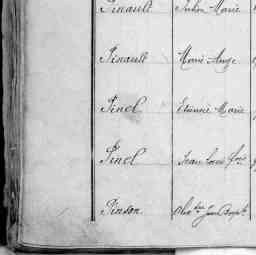 Pinault Julien Marie
Pinault Marie Ange
Pinel Etienne Marie
Pinel Jean Louis
Pinson Jean Bapte